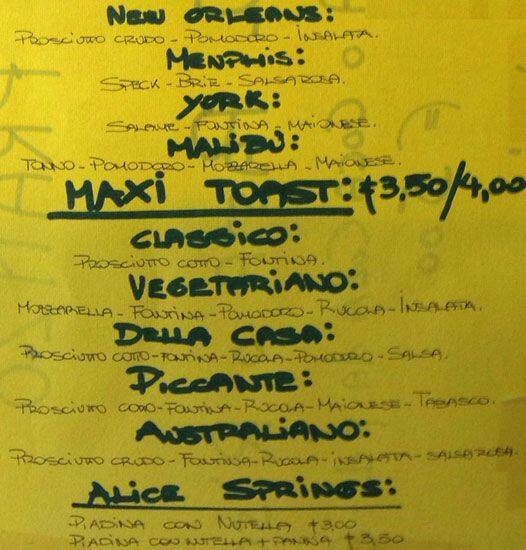 NEW ORLEANS:
PROSCIUTTO CRUDO - POMODORO - INSALATA.
MENPHIS:
SPECK - BRIE - SALSA ROSA.
YORK:
SALAME - FONTINA - MAIONESE.
MALIBÙ:
TONNO - POMODORO - MOZZARELLA - MAIONESE.
MAXI TOAST: €3,50/4,00
CLASSICO:
PROSCIUTTO COTTO - FONTINA.
VEGETARIANO:
MOZZARELLA - FONTINA - POMODORO - RUCOLA - INSALATA.
DELLA CASA:
PROSCIUTTO COTTO - FONTINA - RUCOLA - POMODORO - SALSA.
PICCANTE:
PROSCIUTTO COTTO - FONTINA - RUCOLA - MAIONESE - TABASCO.
AUSTRALIANO:
PROSCIUTTO CRUDO - FONTINA - RUCOLA - INSALATA - SALSA ROSA.
ALICE SPRINGS:
PIADINA CON NUTELLA €3,00
PIADINA CON NUTELLA + PANNA €3,50